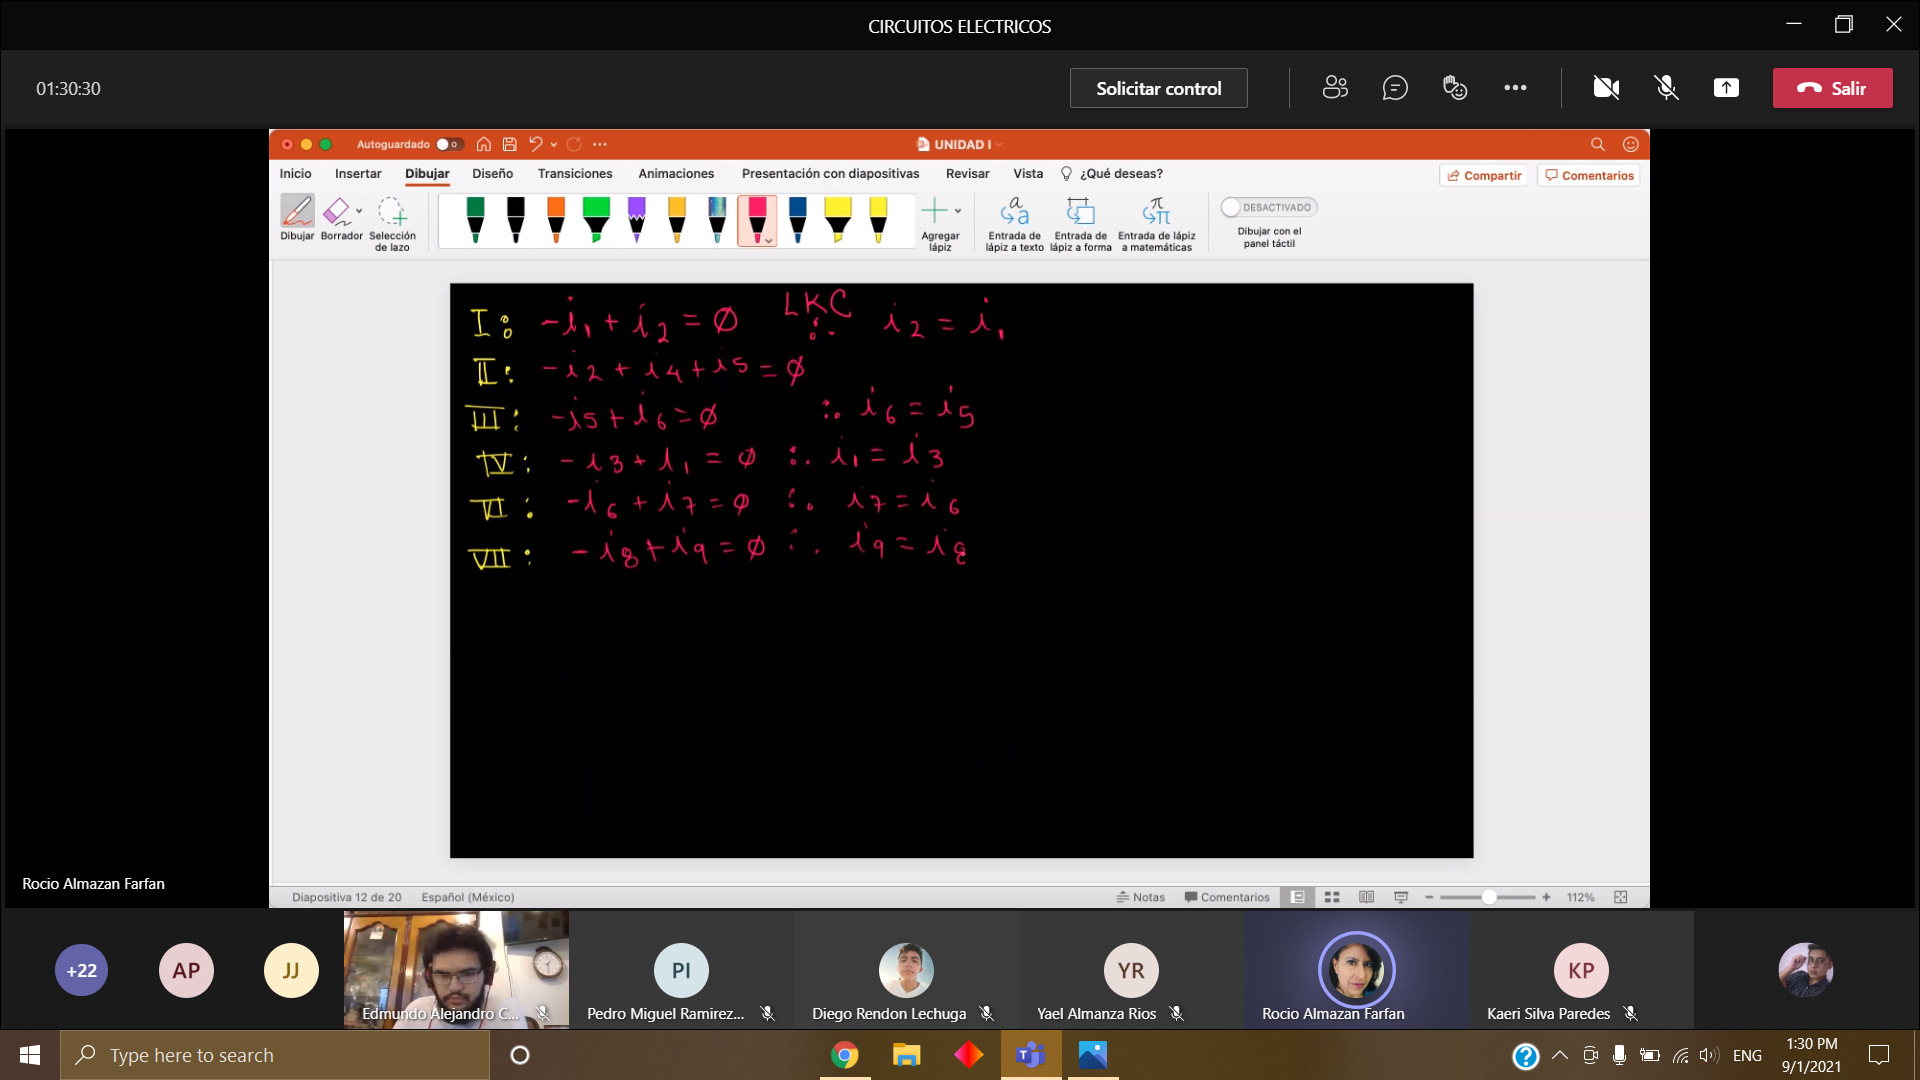 CIRCUITOS ELECTRICOS
01:30:30
Solicitar control
Salir
Autoguardado
UNIDAD I
Inicio Insertar Dibujar Diseño Transiciones Animaciones Presentación con diapositivas Revisar Vista ¿Qué deseas?
Compartir Comentarios
Dibujar Borrador Selección de lazo
Agregar lápiz
Entrada de lápiz a texto
Entrada de lápiz a forma
Entrada de lápiz a matemáticas
DESACTIVADO
Dibujar con el panel táctil
I: -i₁ + i₂ = ∅ LKC ∴ i₂ = i₁
II: -i₂ + i₄ + i₅ = ∅
III: -i₅ + i₆ = ∅ ∴ i₆ = i₅
IV: -i₃ + i₁ = ∅ ∴ i₁ = i₃
VI: -i₆ + i₇ = ∅ ∴ i₇ = i₆
VII: -i₈ + i₉ = ∅ ∴ i₉ = i₈
Rocio Almazan Farfan
Diapositiva 12 de 20 Español (México)
Notas Comentarios 112%
+22 AP JJ PI YR KP
Edmundo Alejandro C... Pedro Miguel Ramirez... Diego Rendon Lechuga Yael Almanza Rios Rocio Almazan Farfan Kaeri Silva Paredes
Type here to search
ENG
1:30 PM
9/1/2021